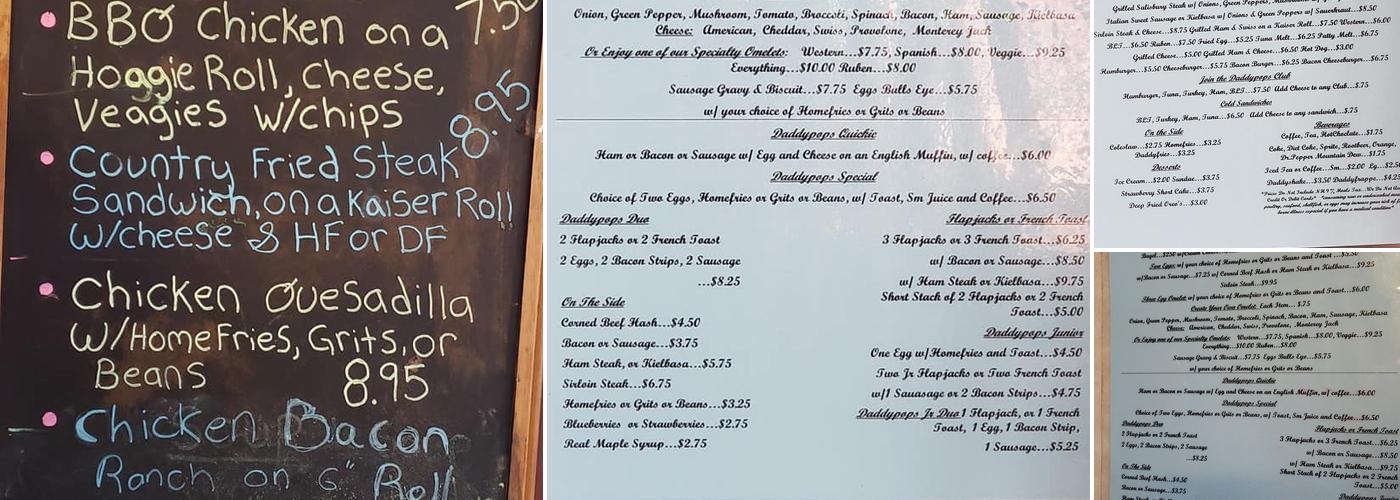 BBQ Chicken on a 7.50
Hoggie Roll, Cheese,
Veagies w/chips
Country Fried Steak 8.95
Sandwich, on a Kaiser Roll
w/cheese & HF or DF
Chicken Quesadilla
w/HomeFries, Grits, or
Beans 8.95
Chicken Bacon
Ranch on 6" Roll
Onion, Green Pepper, Mushroom, Tomato, Broccoli, Spinach, Bacon, Ham, Sausage, Kielbasa
Cheese: American, Cheddar, Swiss, Provolone, Monterey Jack
Or Enjoy one of our Specialty Omelets: Western...$7.75, Spanish...$8.00, Veggie...$9.25
Everything...$10.00 Ruben...$8.00
Sausage Gravy & Biscuit...$7.75 Eggs Bulls Eye...$5.75
w/ your choice of Homefries or Grits or Beans
Daddypops Quickie
Ham or Bacon or Sausage w/ Egg and Cheese on an English Muffin, w/ coffee...$6.00
Daddypops Special
Choice of Two Eggs, Homefries or Grits or Beans, w/ Toast, Sm Juice and Coffee...$6.50
Daddypops Duo
2 Flapjacks or 2 French Toast
2 Eggs, 2 Bacon Strips, 2 Sausage
...$8.25
On The Side
Corned Beef Hash...$4.50
Bacon or Sausage...$3.75
Ham Steak, or Kielbasa...$5.75
Sirloin Steak...$6.75
Homefries or Grits or Beans...$3.25
Blueberries or Strawberries...$2.75
Real Maple Syrup...$2.75
Flapjacks or French Toast
3 Flapjacks or 3 French Toast...$6.25
w/ Bacon or Sausage...$8.50
w/ Ham Steak or Kielbasa...$9.75
Short Stack of 2 Flapjacks or 2 French
Toast...$5.00
Daddypops Junior
One Egg w/Homefries and Toast...$4.50
Two Jr Flapjacks or Two French Toast
w/1 Sauasage or 2 Bacon Strips...$4.75
Daddypops Jr Duo 1 Flapjack, or 1 French
Toast, 1 Egg, 1 Bacon Strip,
1 Sausage...$5.25
Grilled Salisbury Steak w/ Onions, Green Peppers
Italian Sweet Sausage or Kielbasa w/ Onions & Green Peppers w/ Sauerkraut...$8.50
Sirloin Steak & Cheese...$8.75 Grilled Ham & Swiss on a Kaiser Roll...$7.50 Western...$6.00
BLT...$6.50 Ruben...$7.50 Fried Egg...$5.25 Tuna Melt...$6.25 Patty Melt...$6.75
Grilled Cheese...$5.00 Grilled Ham & Cheese...$6.50 Hot Dog...$3.00
Hamburger...$5.50 Cheeseburger...$5.75 Bacon Burger...$6.25 Bacon Cheeseburger...$6.75
Join the Daddypops Club
Hamburger, Tuna, Turkey, Ham, BLT...$7.50 Add Cheese to any Club...$.75
Cold Sandwiches
BLT, Turkey, Ham, Tuna...$6.50 Add Cheese to any sandwich...$.75
On the Side
Coleslaw...$2.75 Homefries...$3.25
Daddyfries...$3.25
Desserts
Ice Cream...$2.00 Sundae...$3.75
Strawberry Short Cake...$3.75
Deep Fried Oreo's...$3.00
Beverages
Coffee, Tea, HotChoclate...$1.75
Coke, Diet Coke, Sprite, Rootbeer, Orange,
Dr.Pepper Mountain Dew...$1.75
Iced Tea or Coffee...Sm...$2.00 Lg...$2.50
Daddyshake...$3.50 Daddyfrappe...$4.25
Two Eggs: w/ your choice of Homefries or Grits or Beans and Toast...$5.50
w/Bacon or Sausage...$7.25 w/ Corned Beef Hash or Ham Steak or Kielbasa...$9.25
Sirloin Steak...$9.95
Three Egg Omelet w/ your choice of Homefries or Grits or Beans and Toast...$6.00
Create Your Own Omelet Each Item...$.75
Onion, Green Pepper, Mushroom, Tomato, Broccoli, Spinach, Bacon, Ham, Sausage, Kielbasa
Cheese: American, Cheddar, Swiss, Provolone, Monterey Jack
Or Enjoy one of our Specialty Omelets: Western...$7.75, Spanish...$8.00, Veggie...$9.25
Everything...$10.00 Ruben...$8.00
Sausage Gravy & Biscuit...$7.75 Eggs Bulls Eye...$5.75
w/ your choice of Homefries or Grits or Beans
Daddypops Quickie
Ham or Bacon or Sausage w/ Egg and Cheese on an English Muffin, w/ coffee...$6.00
Daddypops Special
Choice of Two Eggs, Homefries or Grits or Beans, w/ Toast, Sm Juice and Coffee...$6.50
Daddypops Duo
2 Flapjacks or 2 French Toast
2 Eggs, 2 Bacon Strips, 2 Sausage
...$8.25
On The Side
Corned Beef Hash...$4.50
Bacon or Sausage...$3.75
Flapjacks or French Toast
3 Flapjacks or 3 French Toast...$6.25
w/ Bacon or Sausage...$8.50
w/ Ham Steak or Kielbasa...$9.75
Short Stack of 2 Flapjacks or 2 French
Toast...$5.00